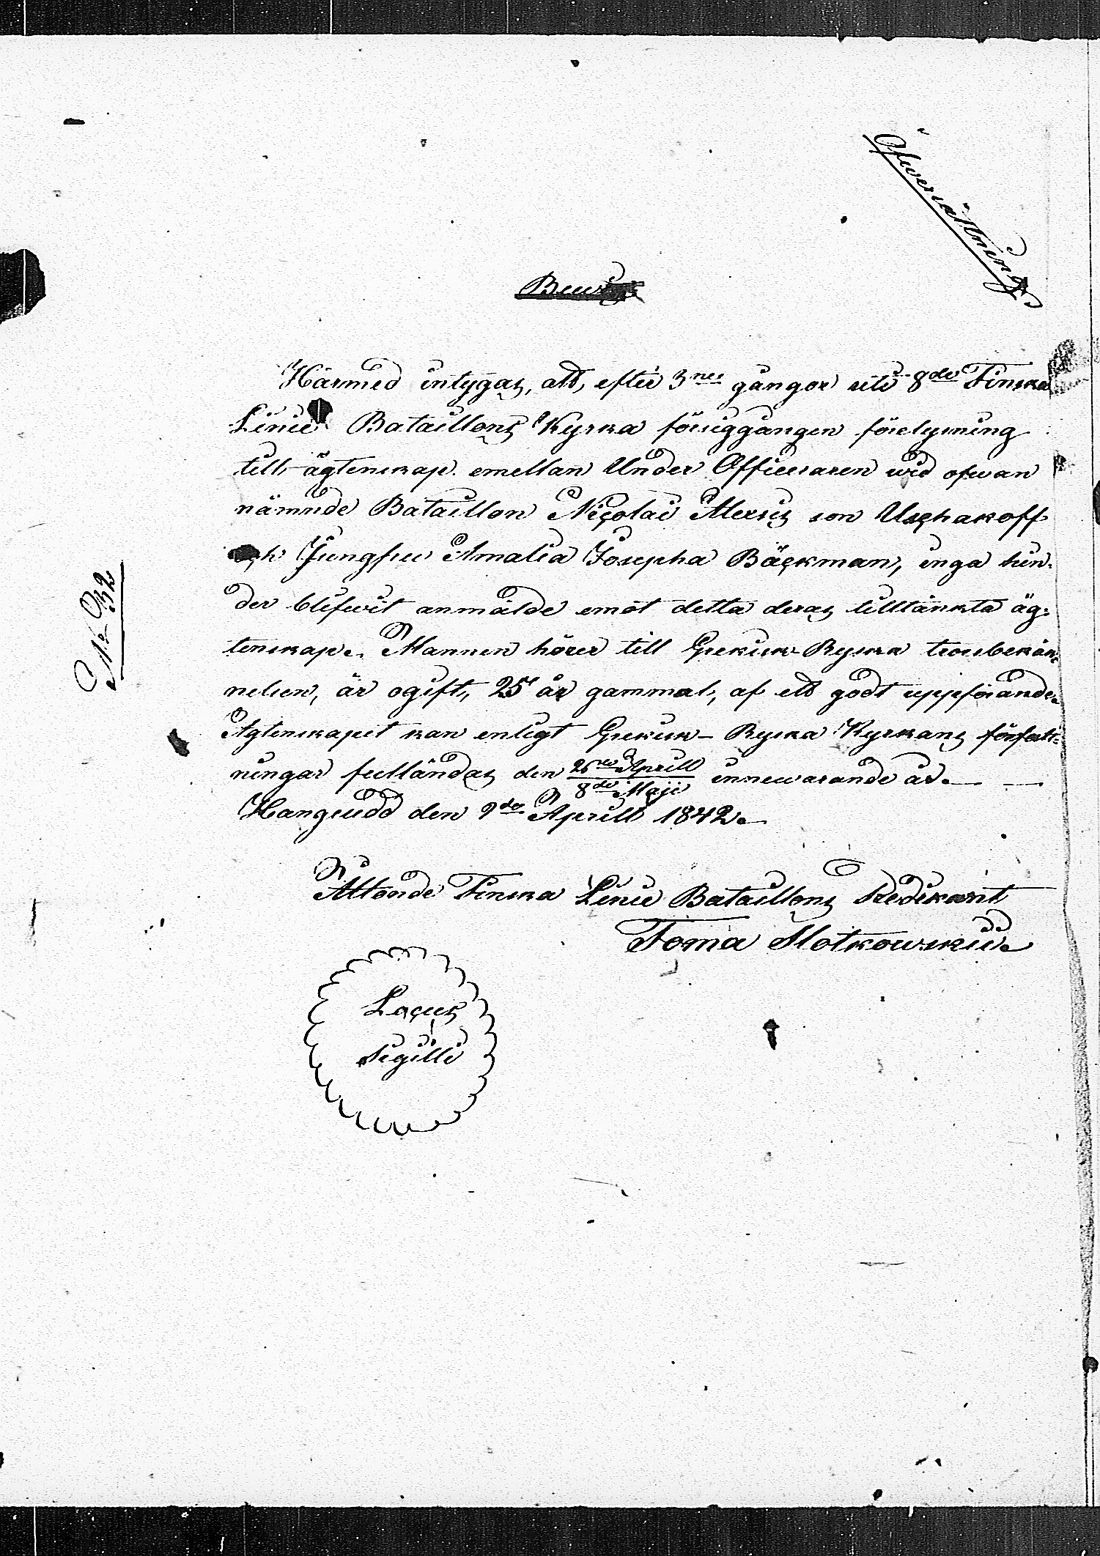 Öfwersättning
Bewis
N: 32
Härmed intygas, att, efter 3ne gångor uti 8de Finska
Linie Bataillons Kyrka föregången förelysning
till ägtenskap emellan Under Officeraren wid ofwan
nämnde Bataillon Nicolai Alexis son Uschakoff
och Jungfru Amalia Josepha Bäckman, inga hin-
der blifwit anmälde emot detta deras tilltänkta äg-
tenskap. Mannen hörer till Grekisk-Ryska trosbekän-
nelsen, är ogift, 25 år gammal, af ett godt uppförande.
Ägtenskapet kan enligt Grekisk-Ryska Kyrkans författ-
ningar fulländas den 26te Aprill / 8de Maji innewarande år. — —
Hangöudd den 9de Aprill 1842.
Åttonde Finska Linie Bataillons Predikant
Foma Slotkowskii.
Locus
Sigilli